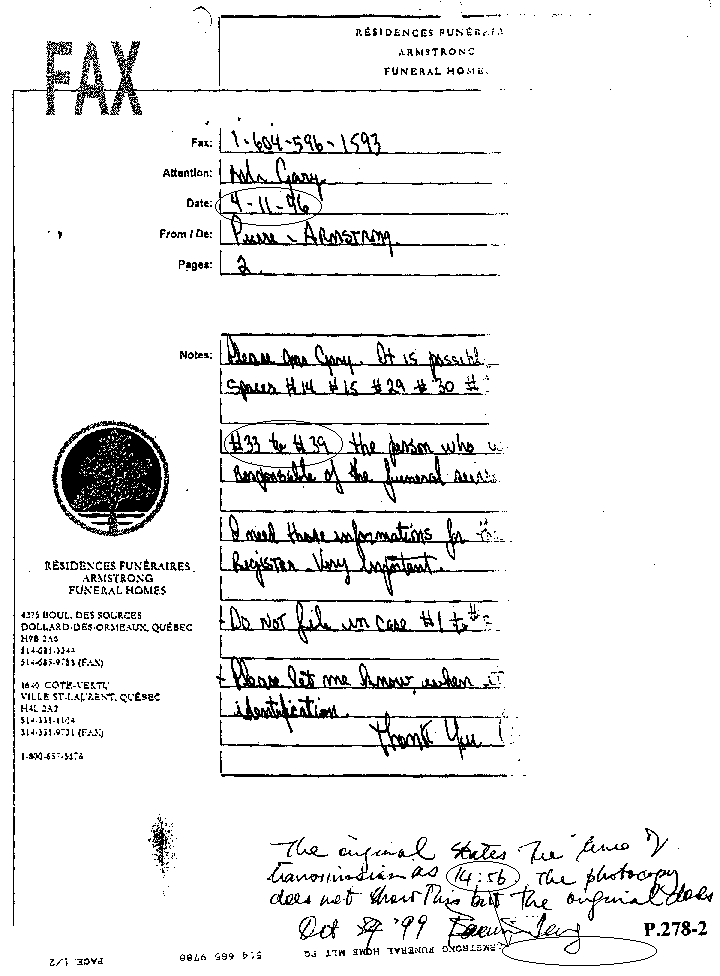 FAX
RÉSIDENCES FUNÉRAI
ARMSTRONG
FUNERAL HOME
Fax: 1-604-596-1593
Attention: Mr. Gary
Date: 4-11-96
From / De: Pierre - ARMSTRONG.
Pages: 2
Notes: Please Mr Gary. It is possibl
Spaces #14 #15 #29 #30 #
#33 to #39 the person who w
Responsable of the funeral
I need those informations for the
Register - Very Important.
- Do Not file in case #1 to #
- Please let me know, when it
identification.
Thank You
RÉSIDENCES FUNÉRAIRES
ARMSTRONG
FUNERAL HOMES
4375 BOUL. DES SOURCES
DOLLARD-DES-ORMEAUX, QUÉBEC
514-685-9788 (FAX)
1640 COTE-VERTU
VILLE ST-LAURENT, QUÉBEC
H4L 2A2
(FAX)
The original states the time of
transmission as 14:56 The photocopy
does not show this but the original does
Oct '99
P.278-2
PAGE 1/2
514 685 9788
ARMSTRONG FUNERAL HOME MLT FC